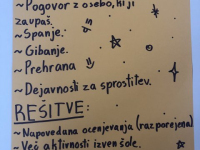 ~Pogovor z osebo, ki ji
zaupaš.
~Spanje.
~Gibanje.
~Prehrana
~Dejavnosti za sprostitev.
REŠITVE:
~Napovedana ocenjevanja (razporejena)
~Več aktivnosti izven šole.